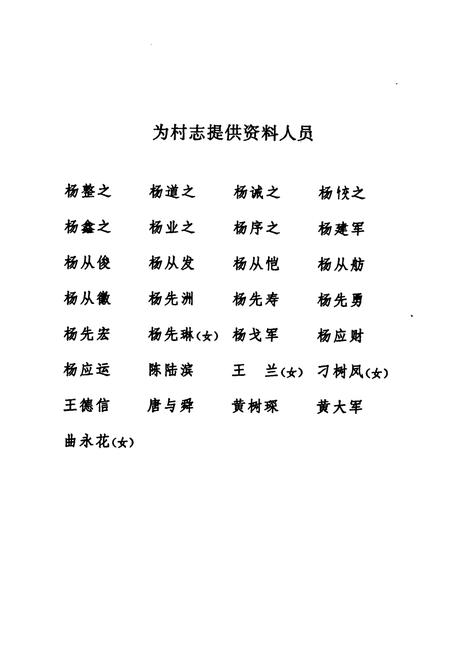 为村志提供资料人员
杨整之 杨道之 杨诚之 杨之
杨鑫之 杨业之 杨序之 杨建军
杨从俊 杨从发 杨从恺 杨从舫
杨从徽 杨先洲 杨先寿 杨先勇
杨先宏 杨先琳(女) 杨戈军 杨应财
杨应运 陈陆滨 王 兰(女) 刁树凤(女)
王德信 唐与舜 黄树琛 黄大军
曲永花(女)